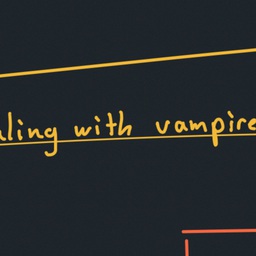 aling with vampire